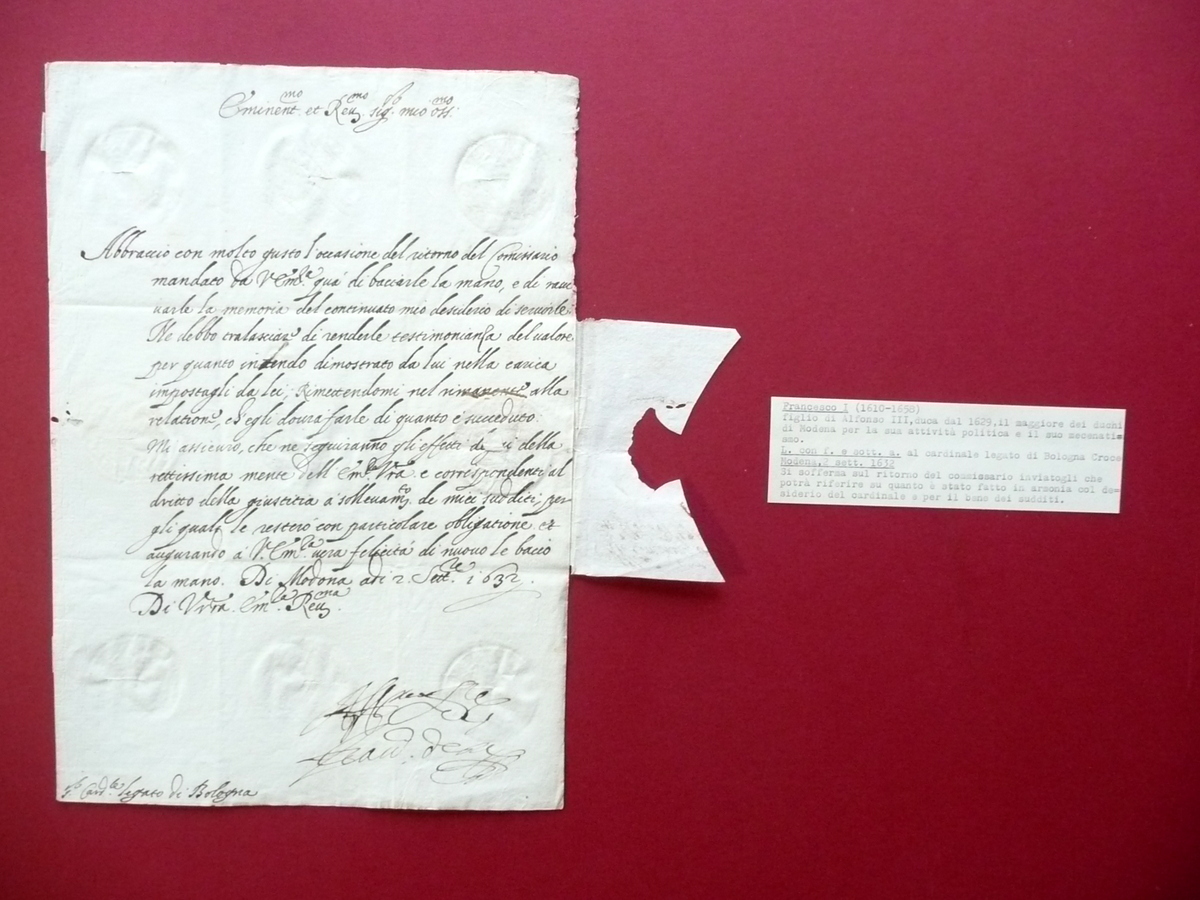 Eminent.mo et Reu.mo sig. mio oss.mo
Abbraccio con molto gusto l'occasione del ritorno del Comissario
mandato da V. Em.za quà di bacciarle la mano, e di raui
uarle la memoria del continuato mio desiderio di seruirle.
Ne debbo tralasciar di renderle testimonianza del valore
per quanto intendo dimostrato da lui nella carica
impostagli da lei, Rimettendomi nel rimanente alla
relatione, ch'egli dourà farle di quanto è succeduto.
Mi assicuro, che ne seguiranno gli effetti della
rettissima mente dell' Em. Vra. e correspondenti al
dritto della giustitia a solleuam.to de miei sudditi, per
gli quali le resterò con particolare obligatione et
augurando à V. Em.za uera felicità di nuouo le bacio
la mano. Di Modona adi 2. Sett.re 1632.
Di Vra. Em.za Reu.ma
S.r Card.le legato di Bologna
Francesco I (1610-1658)
figlio di Alfonso III,duca dal 1629,il maggiore dei duchi
di Modena per la sua attività politica e il suo mecenati=
smo.
L. con f. e sott. a. al cardinale legato di Bologna Croce
Modena,2 sett. 1632
Si sofferma sul ritorno del commissario inviatogli che
potrà riferire su quanto è stato fatto in armonia col de=
siderio del cardinale e per il bene dei sudditi.